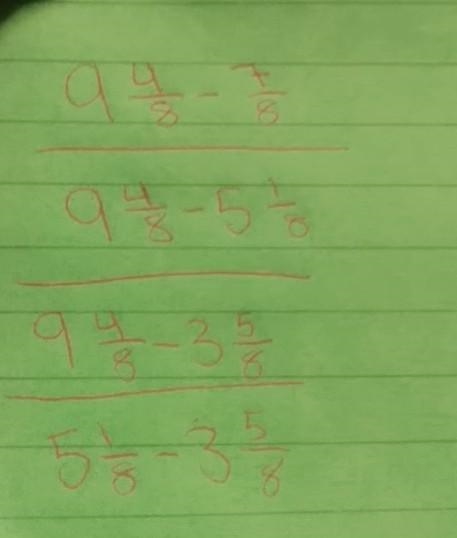 9 4/8 - 7/8
9 4/8 - 5 1/8
9 4/8 - 3 5/8
5 1/8 - 3 5/8